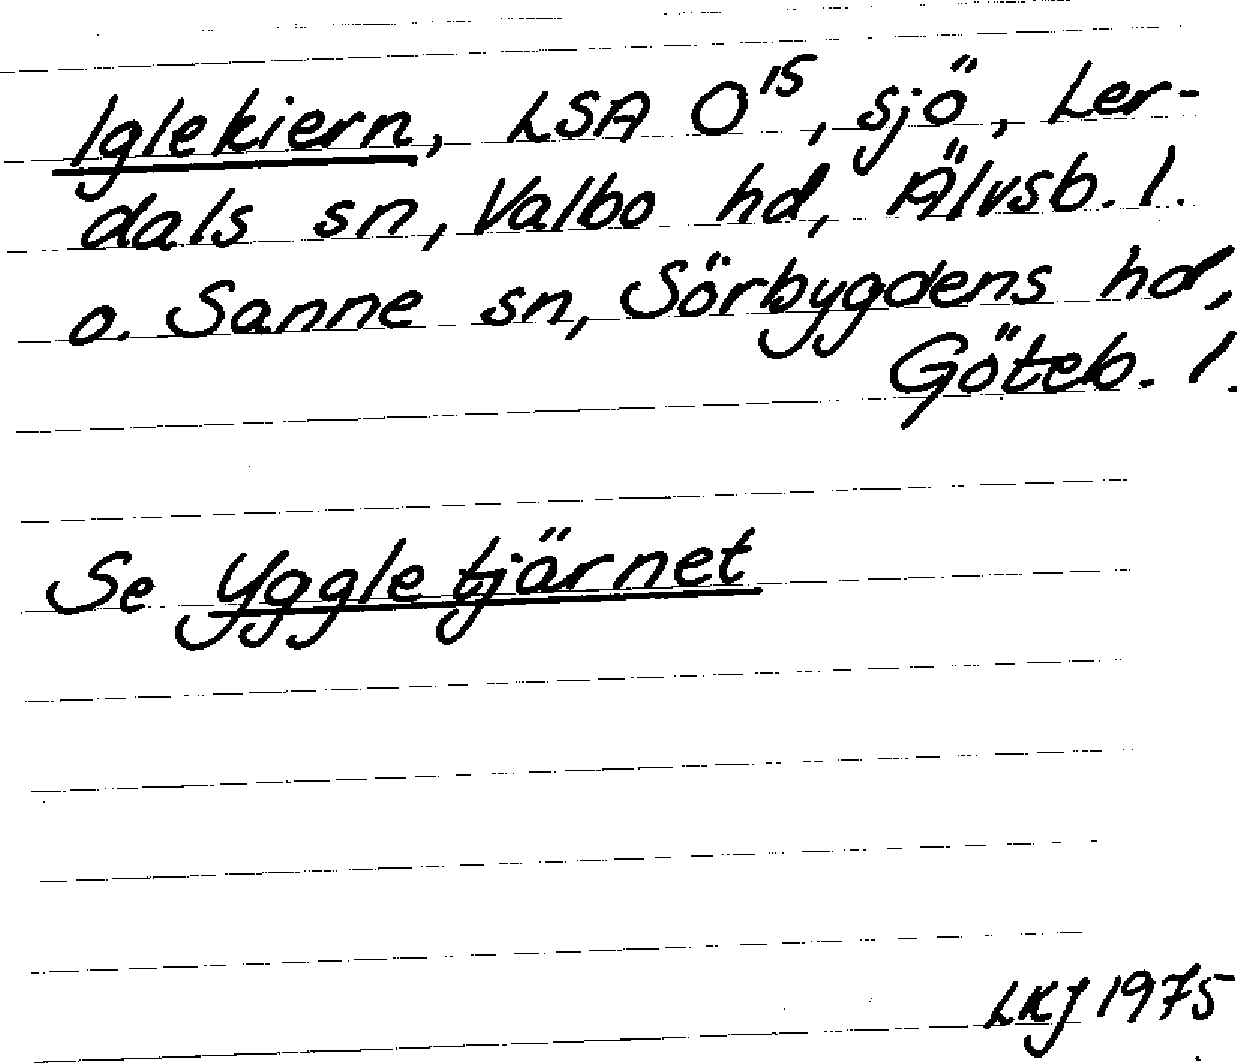 Iglekiern, LSA O¹⁵, sjö, Ler-
dals sn, Valbo hd, Älvsb. l.
o. Sanne sn, Sörbygdens hd,
Göteb. l.
Se Yggletjärnet
LKJ 1975